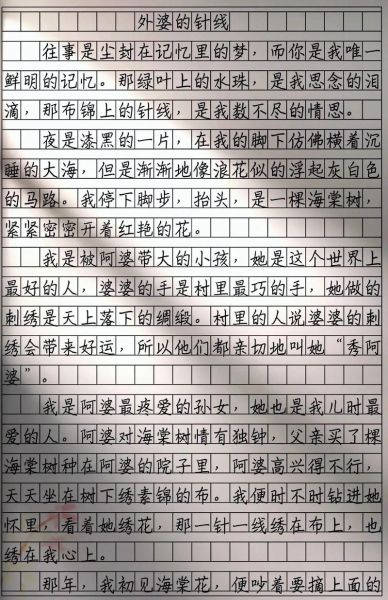 外婆的针线
往事是尘封在记忆里的梦，而你是我唯一
鲜明的记忆。那绿叶上的水珠，是我思念的泪
滴，那布锦上的针线，是我数不尽的情思。
夜是漆黑的一片，在我的脚下仿佛横着沉
睡的大海，但是渐渐地像浪花似的浮起灰白色
的马路。我停下脚步，抬头，是一棵海棠树，
紧紧密密开着红艳的花。
我是被阿婆带大的小孩，她是这个世界上
最好的人，婆婆的手是村里最巧的手，她做的
刺绣是天上落下的绸缎。村里的人说婆婆的刺
绣会带来好运，所以他们都亲切地叫她“秀阿
婆”。
我是阿婆最疼爱的孙女，她也是我儿时最
爱的人。阿婆对海棠树情有独钟，父亲买了棵
海棠树种在阿婆的院子里，阿婆高兴得不行，
天天坐在树下绣素锦的布。我便时不时钻进她
怀里，看着她绣花，那一针一线绣在布上，也
绣在我心上。
那年，我初见海棠花，便吵着要摘上面的